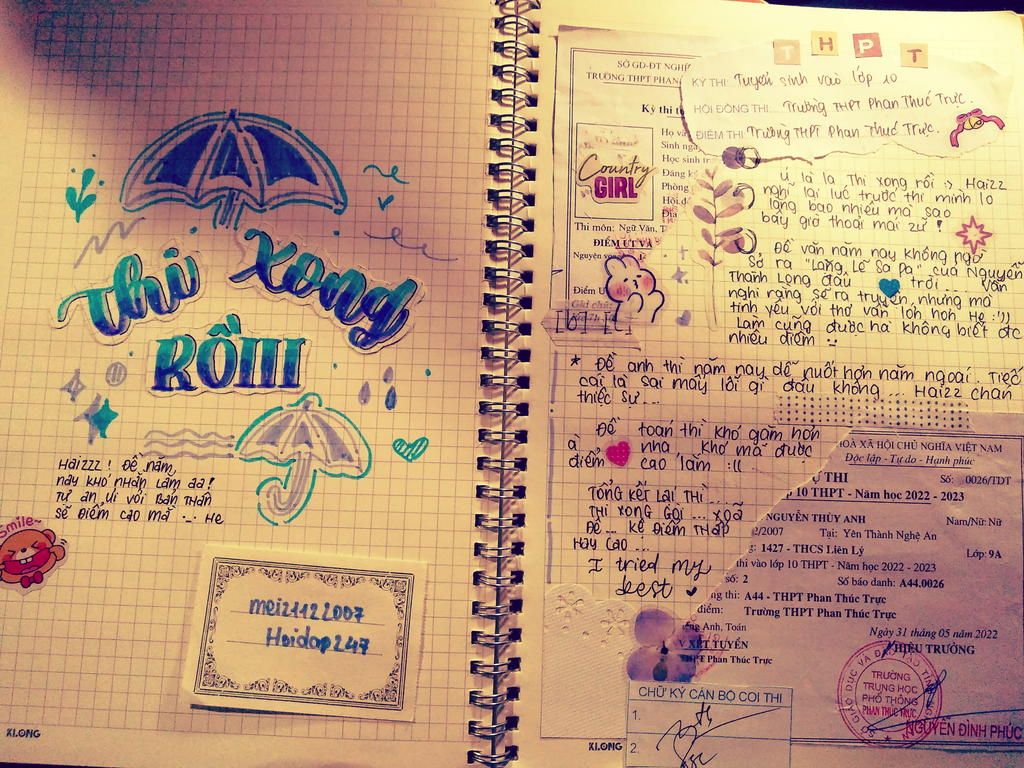 Thi Xong
RỒIII
Haizzz! Đề năm
nay khó nhằn lắm aa!
tự an ủi với bản thân
sẽ điểm cao mà ._. He
Smile~
mei21122007
Hoidap247
KLONG
THPT
SỞ GD-ĐT NGHỆ
TRƯỜNG THPT PHAN
Kỳ thi t
Họ và
Sinh ngà
Học sinh tr
Đăng k
Phòng
Hội đ
Địa
Country
GIRL
Thi môn: Ngữ Văn, T
ĐIỂM ƯT VÀ
Nguyện vọ
Điểm Ư
Ghi chú
KỲ THI: Tuyển sinh vào lớp 10
HỘI ĐỒNG THI: Trường THPT Phan Thúc Trực.
ĐIỂM THI: Trường THPT Phan Thúc Trực.
Ú la la Thi xong rồi :> Haizz
nghĩ lại lúc trước thi mình lo
lắng bao nhiêu mà sao
bây giờ thoải mái zữ !
Đề văn năm nay không ngờ
Sở ra "Lặng Lẽ Sa Pa" của Nguyễn
Thành Long đâu trời ... Vẫn
nghĩ rằng sẽ ra truyện, nhưng mà
tình yêu với thơ vẫn lớn hơn He :'))
Làm cũng được hà không biết đc
nhiều điểm
* Đề anh thì năm nay dễ nuốt hơn năm ngoái. Tiếc
cái là sai mấy lỗi gì đâu không ... Haizz chán
thiệc sự ...
Đề toán thì khó gặm hơn
à nha khó mà được
điểm cao lắm :((
TỔNG KẾT LẠI THÌ ...
THI XONG GÒI ... XÕA
ĐÊ ... KỆ ĐIỂM THẤP
HAY CAO ...
I tried my
best
HÒA XÃ HỘI CHỦ NGHĨA VIỆT NAM
Độc lập - Tự do - Hạnh phúc
Số: 0026/TDT
Ự THI
p 10 THPT - Năm học 2022 - 2023
NGUYỄN THÙY ANH
Nam/Nữ: Nữ
2/2007 Tại: Yên Thành Nghệ An
1427 - THCS Liên Lý
Lớp: 9A
thi vào lớp 10 THPT - Năm học 2022 - 2023
số: 2 Số báo danh: A44.0026
ng thi: A44 - THPT Phan Thúc Trực
điểm: Trường THPT Phan Thúc Trực
ếng Anh, Toán
V XÉT TUYỂN
THPT Phan Thúc Trực
Ngày 31 tháng 05 năm 2022
HIỆU TRƯỞNG
SỞ GIÁO DỤC VÀ ĐÀO TẠO
TRƯỜNG
TRUNG HỌC
PHỔ THÔNG
PHAN THÚC TRỰC
NGUYỄN ĐÌNH PHÚC
CHỮ KÝ CÁN BỘ COI THI
1.
2.
KLONG